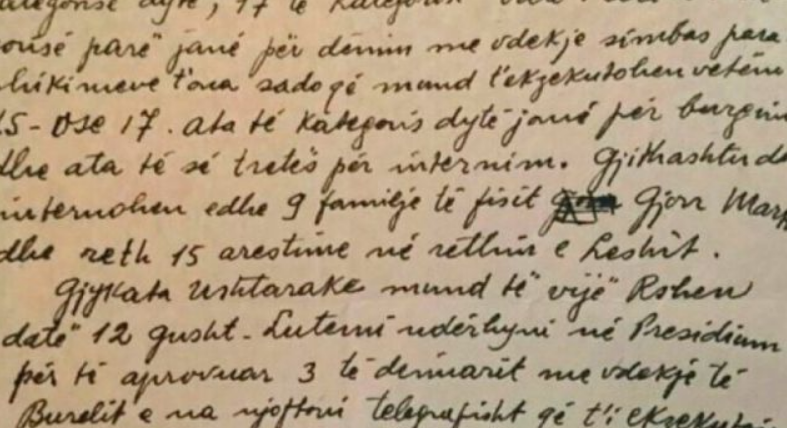 kategorisë dytë, 17 të kategoris
gorisë parë jané për dënim me vdekje simbas para
shikimeve t'ona sado që mund t'ekzekutohen vetëm
15 - ose 17. ata të kategoris dytë janë për burgim
dhe ata të së tretës për internim. Gjithashtu do
internohen edhe 9 familje të fisit Gjon Mark
dhe reth 15 arestime në rethin e Leshit.
Gjykata Ushtarake mund të vijë Rshen
datë 12 gusht - Lutemi ndërhyni në Presidium
për të aprovuar 3 të denuarit me vdekje të
Burelit e na njoftoni telegrafisht që t'i